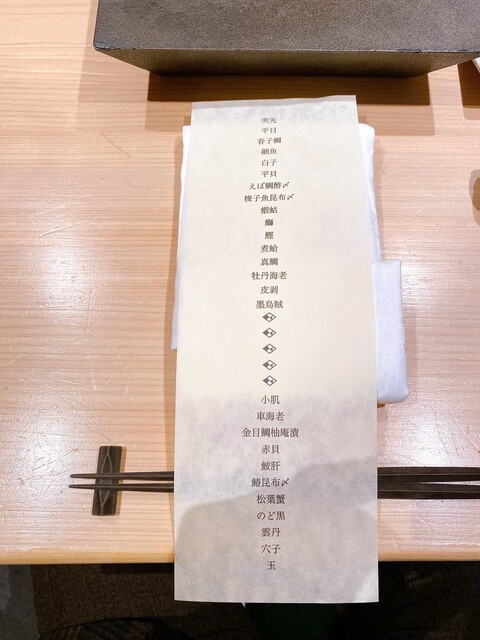 突先
平目
春子鯛
細魚
白子
平貝
えぼ鯛酢〆
梭子魚昆布〆
蝦蛄
鰤
鰹
煮蛤
真鯛
牡丹海老
皮剥
墨烏賊
小肌
車海老
金目鯛柚庵漬
赤貝
鮟肝
鰆昆布〆
松葉蟹
のど黒
雲丹
穴子
玉